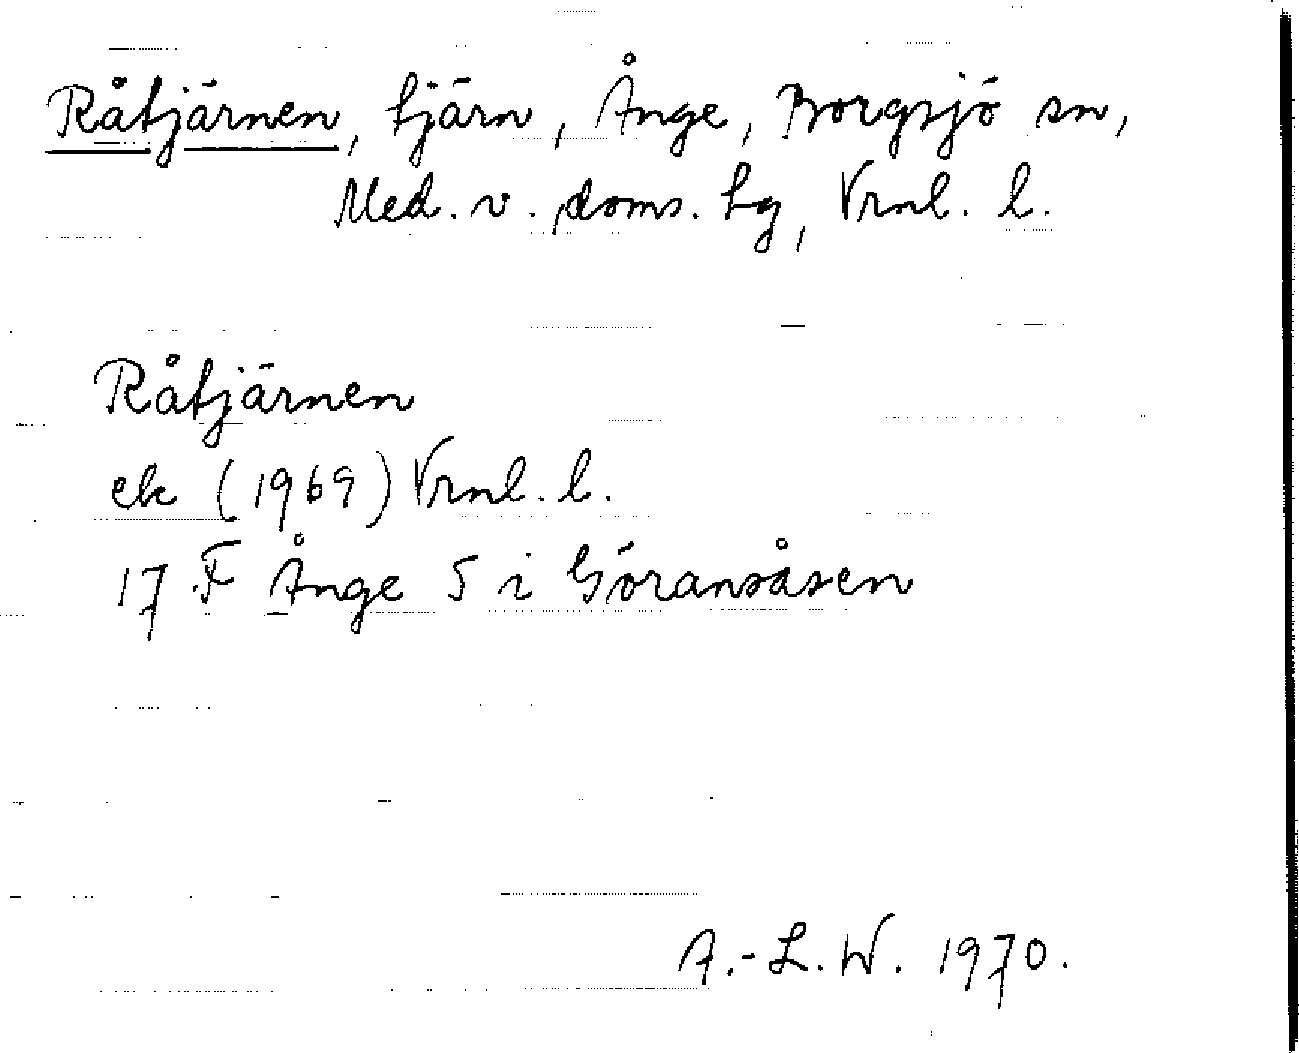 Råtjärnen, tjärn, Ånge, Borgsjö sn,
Med. v. doms. tg, Vrnl. l.
Råtjärnen
ek (1969) Vrnl. l.
17 F Ånge 5 i Göransåsen
A.-L. W. 1970.